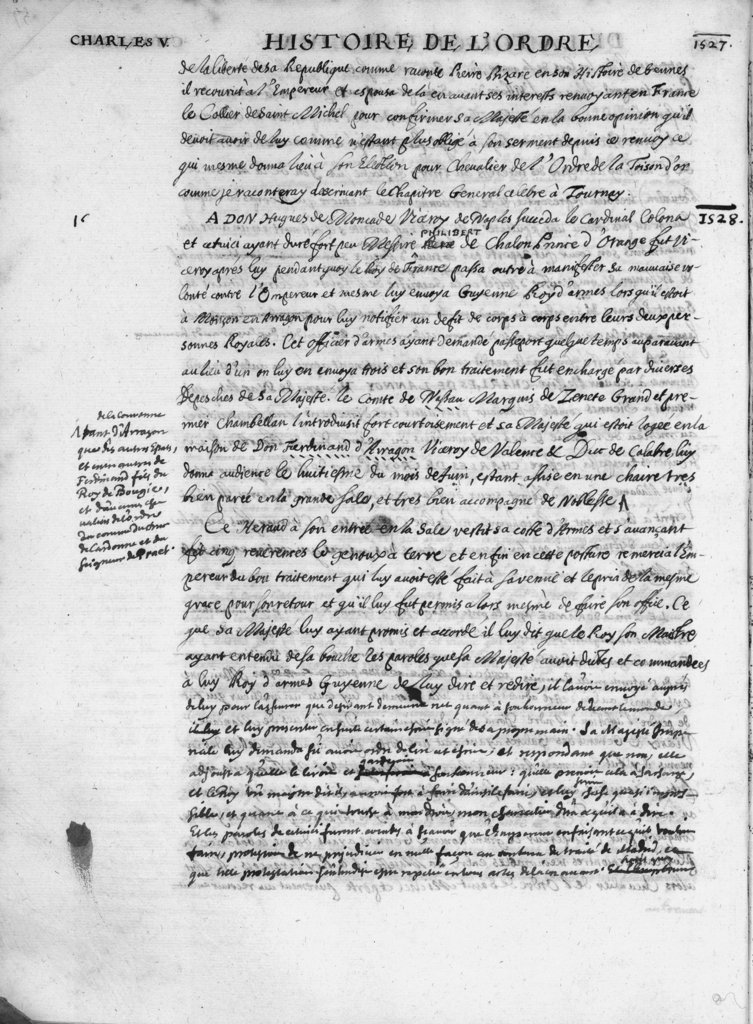 CHARLES V.
HISTOIRE DE L'ORDRE
1527.
de la liberte de sa Republique comme raconte Pierre Bizare en son Histoire de Gennes
il recourut a l'Empereur et espousa de la en avant ses interests renvoyant en France
le Collier de Saint Michel pour confirmer sa Majesté en la bonne opinion qu'il
devoit avoir de luy comme n'estant plus obligé à son serment depuis ce renvoy ce
qui mesme donna lieu à son Election pour Chevalier de l'Ordre de la Toison d'or
comme je raconteray descrivant le Chapitre General celebre à Tournay.
16
1528.
A DON Hugues de Moncade Viceroy de Naples succeda le Cardinal Colona
PHILIBERT
et cetuicy ayant duré fort peu Messire de Chalon Prince d'Orange fut Vi-
ceroy après luy pendant quoy le Roy de France passa outre à manifester sa mauvaise vo-
lonté contre l'Empereur et mesme luy envoya Guyenne Roy d'armes lors qu'il estoit
à Monson en Arragon pour luy notifier un defit de corps à corps entre leurs deux per-
sonnes Royales. Cet officier d'armes ayant demandé passeport quelque temps auparavant
au lieu d'un on luy en envoya trois et son bon traitement fut enchargé par diverses
Depesches de Sa Majesté. le Comte de Nassau Marquis de Zenete Grand et pre-
mier Chambellan l'introduisit fort courtoisement et sa Majesté qui estoit logée en la
maison de Don Ferdinand d'Arragon Viceroy de Valence & Duc de Calabre luy
donna audience le huitiesme du mois de Juin, estant assise en une chaire tres
bien parée en la grande sale, et tres bien accompagné de Noblesse
de la Couronne
d'Arragon
que des autres Estats,
et entre autres de
Ferdinand fils du
Roy de Bougie,
et d'aucuns che-
valiers de l'ordre
au comme du Duc
de Cardonne et du
Seigneur de Praet.
Ce Heraud à son entrée en la Sale vestit sa cotte d'Armes et s'avançant
fit cinq reverences le genoux a terre et enfin en cette posture remercia l'Em-
pereur du bon traitement qui luy avoit esté fait à sa venue et le pria de la mesme
grace pour son retour et qu'il luy fut permis alors mesme de faire son office. Ce
que Sa Majesté luy ayant promis et accordé il luy dit que le Roy son Maistre
ayant entendu de sa bouche les paroles que sa Majesté avoit dites et commandées
à luy Roy d'armes Guyenne de luy dire et redire, il l'avoit envoyé auprès
de luy pour l'asseurer que desirant demeurer net quant à son honneur
et luy presenter en suite certain signé de sa propre main. Sa Majesté Impe-
riale luy demanda s'il avoit ordre de lire cet escrit, et respondant que non, elle
adjousta qu'elle le liroit et garderoit son honneur: qu'elle
et le Roy
sible, et quant à ce qui touche à mon droit, mon chancelier dira ce qu'il a à dire.
Et les paroles de cetuicy furent à sçavoir que l'Empereur en faisant ce qu'il vouloit
faire, protestoit de ne prejudicier en nulle façon au contenu du traité de Madrid, et
que telle protestation